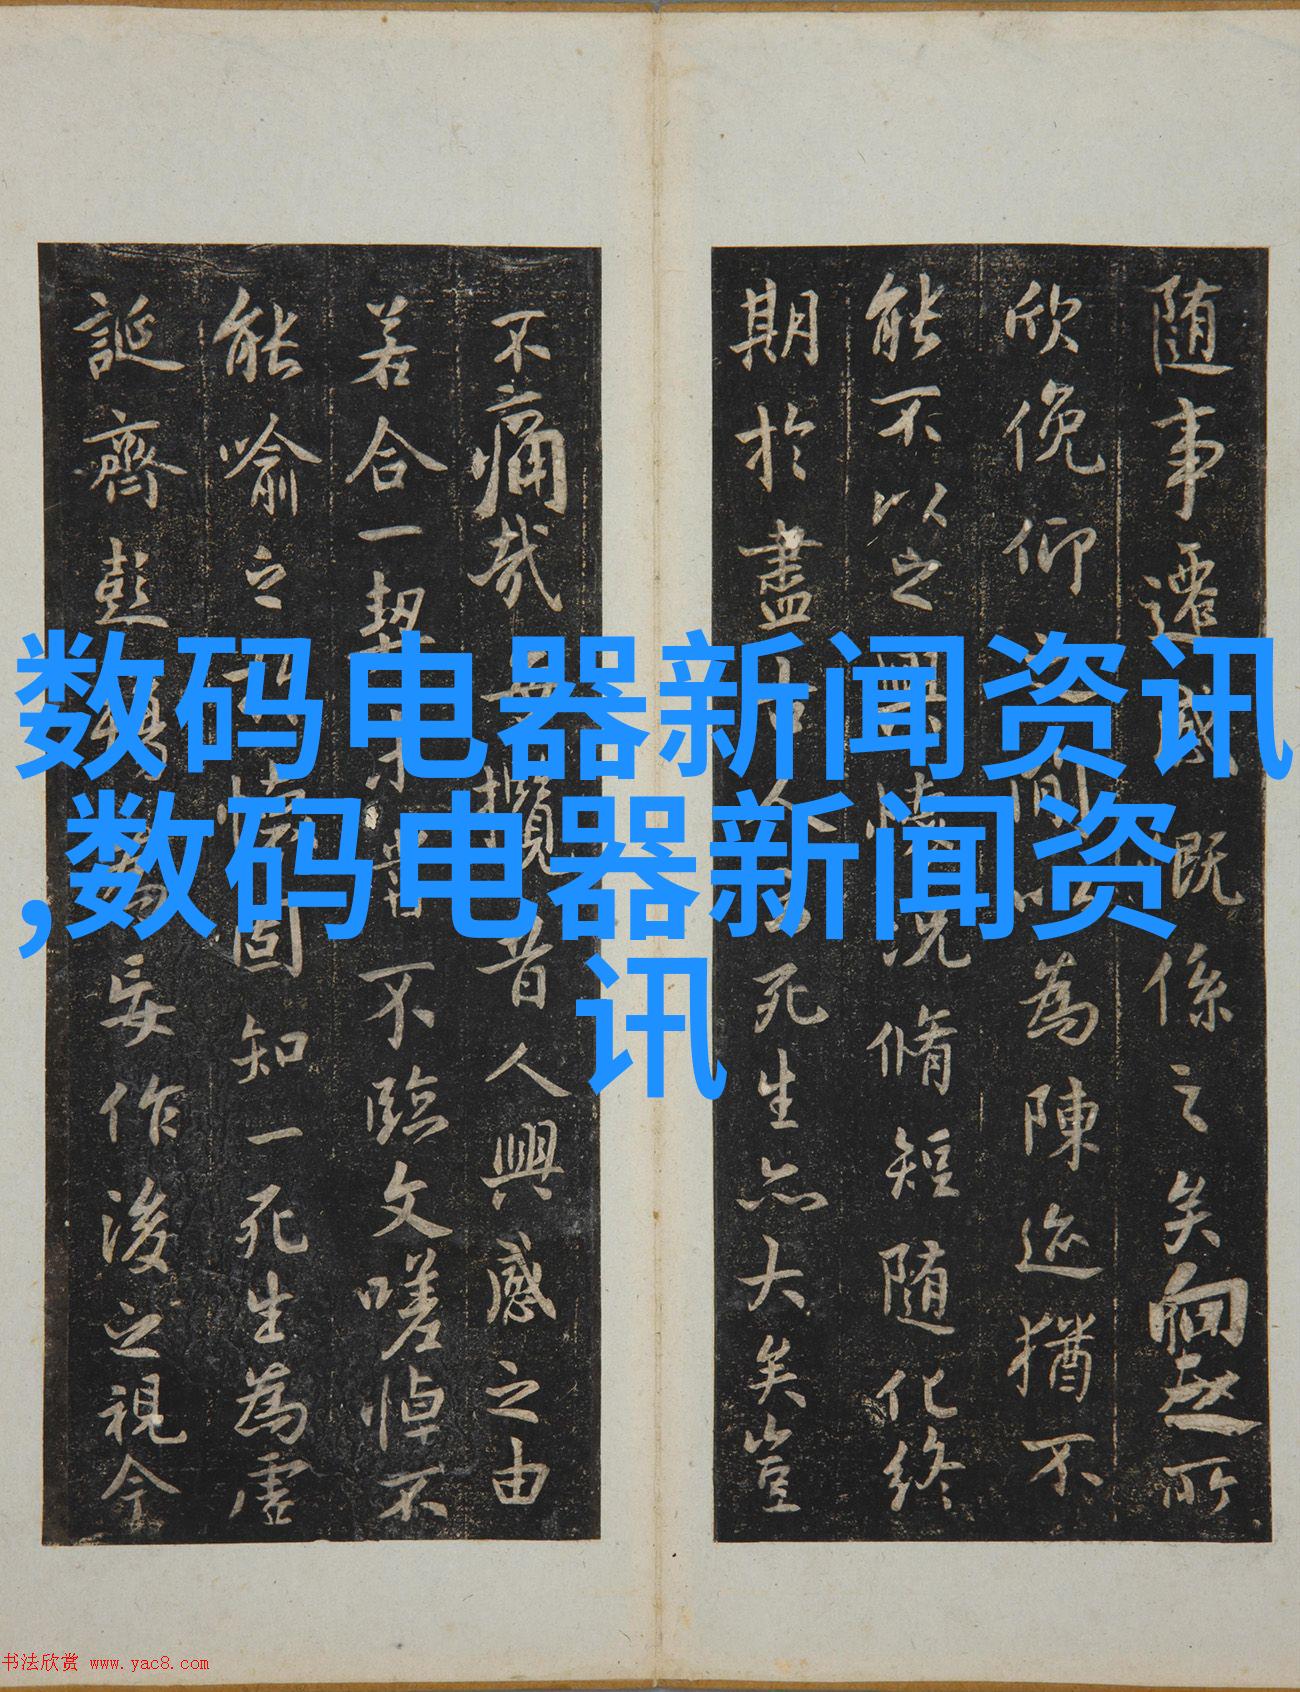 数码电器新闻资讯
,数码电器新闻资
讯
随事遷感慨係之矣向之所
欣俛仰之閒以為陳迹猶不
能不以之興懷況脩短随化終
期於盡古人云死生亦大矣豈
不痛哉每攬昔人興感之由
若合一契未嘗不臨文嗟悼不
能喻之於懷固知一死生為虛
誕齊彭殤為妄作後之視今
书法欣赏 www.yac8.com